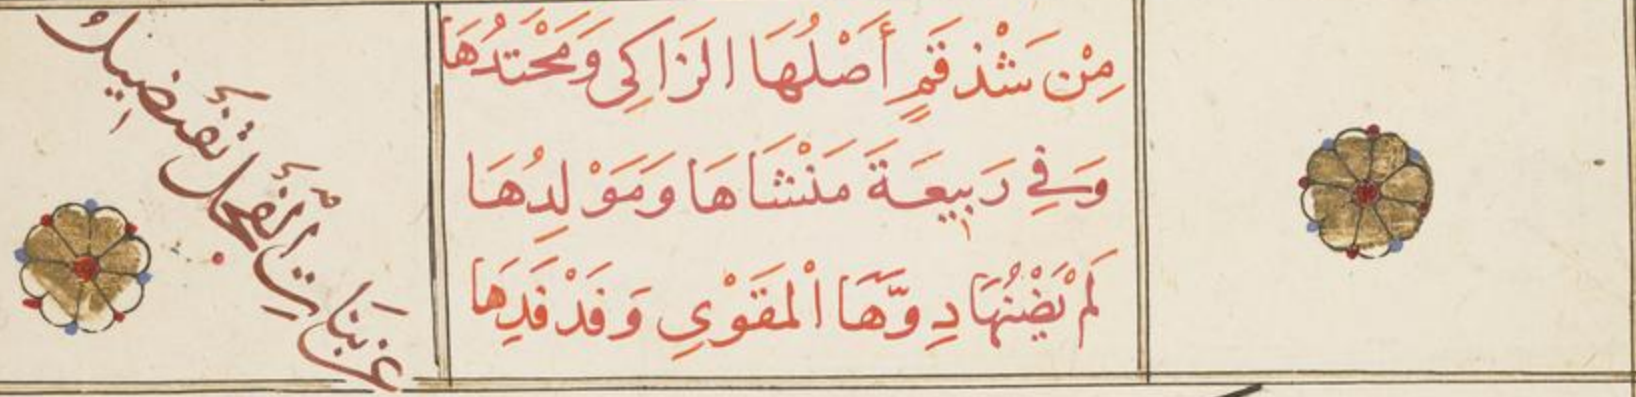 مِنْ شَذْقَمٍ أَصْلُهَا الزَاكِي وَمَحْتَدُهَا
وَفِي رَبِيعَةَ مَنْشَاهَا وَمَوْلِدُهَا
لَمْ يُضْنِهَا دِوَّهَا الْمَقَوْيِ وَفَدْفَدِهَا
عن بنات الفحل تفضيل